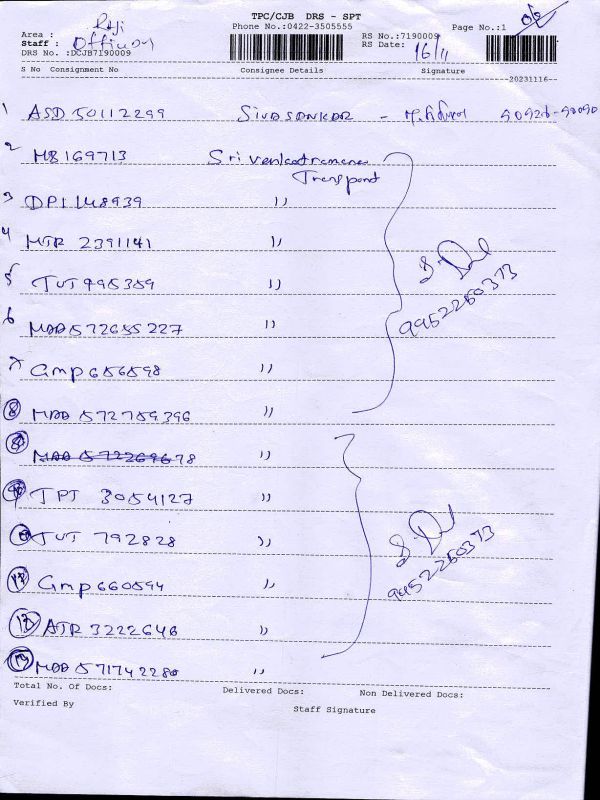 TPC/CJB DRS - SPT
Phone No.:0422-3505555
Page No.:1
Area :
Staff :
RS No.:7190009
DRS No. :DCJB7190009
RS Date: 16/11
S No Consignment No Consignee Details Signature
20231116
1 ASD 50112299 Sivasankar -
2 MB 169713 Sri venkatramana
Transport
3 DPI 148939 ,,
4 MTR 2391141 ,,
5 TUT 995359 ,,
6 MAA 572655227 ,,
7 Gmp 656598 ,,
9952250373
8 MAA 572759396 ,,
MAA 572269678 ,,
TPT 3054127 ,,
TUT 792828 ,,
Gmp 660594 ,,
9952250373
13 ATR 3222646 ,,
MAA 571742280 ,,
Total No. Of Docs: Delivered Docs: Non Delivered Docs:
Verified By
Staff Signature